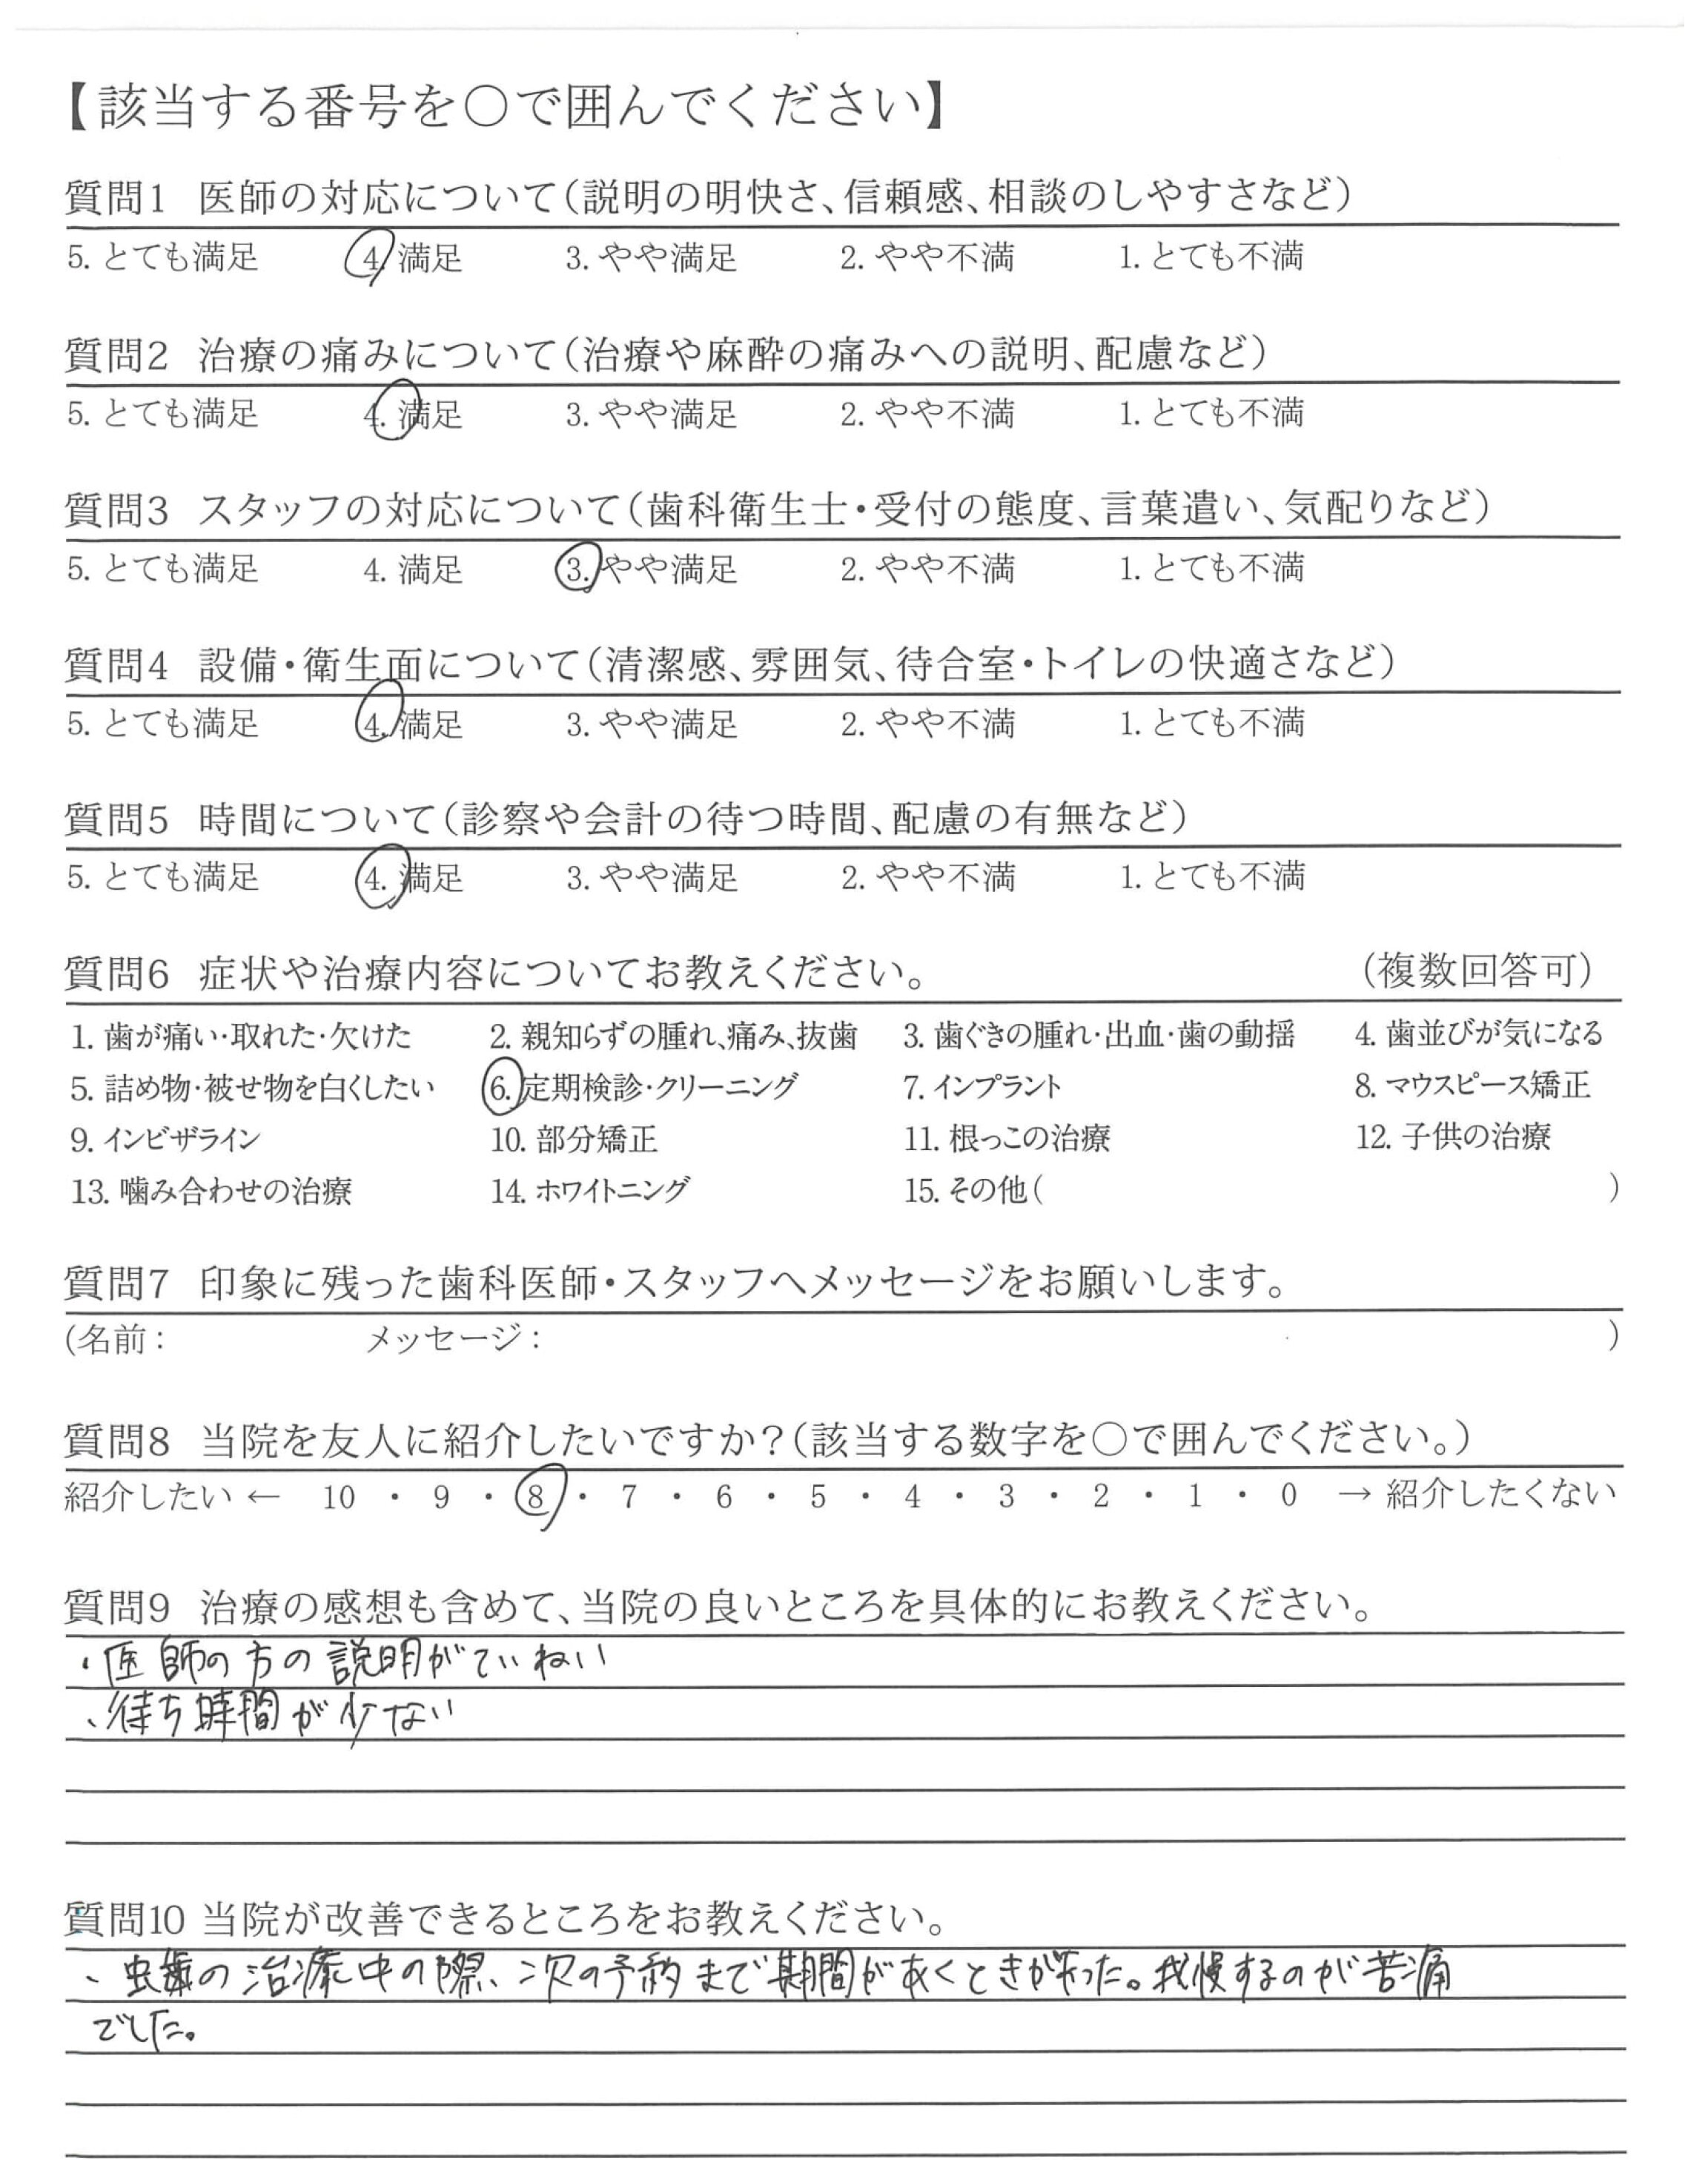 【該当する番号を○で囲んでください】
質問1 医師の対応について(説明の明快さ、信頼感、相談のしやすさなど)
5. とても満足 4. 満足 3. やや満足 2. やや不満 1. とても不満
質問2 治療の痛みについて(治療や麻酔の痛みへの説明、配慮など)
5. とても満足 4. 満足 3. やや満足 2. やや不満 1. とても不満
質問3 スタッフの対応について(歯科衛生士・受付の態度、言葉遣い、気配りなど)
5. とても満足 4. 満足 3. やや満足 2. やや不満 1. とても不満
質問4 設備・衛生面について(清潔感、雰囲気、待合室・トイレの快適さなど)
5. とても満足 4. 満足 3. やや満足 2. やや不満 1. とても不満
質問5 時間について(診察や会計の待つ時間、配慮の有無など)
5. とても満足 4. 満足 3. やや満足 2. やや不満 1. とても不満
質問6 症状や治療内容についてお教えください。 (複数回答可)
1. 歯が痛い・取れた・欠けた 2. 親知らずの腫れ、痛み、抜歯 3. 歯ぐきの腫れ・出血・歯の動揺 4. 歯並びが気になる
5. 詰め物・被せ物を白くしたい 6. 定期検診・クリーニング 7. インプラント 8. マウスピース矯正
9. インビザライン 10. 部分矯正 11. 根っこの治療 12. 子供の治療
13. 噛み合わせの治療 14. ホワイトニング 15. その他( )
質問7 印象に残った歯科医師・スタッフへメッセージをお願いします。
(名前: メッセージ: )
質問8 当院を友人に紹介したいですか?(該当する数字を○で囲んでください。)
紹介したい ← 10 ・ 9 ・ 8 ・ 7 ・ 6 ・ 5 ・ 4 ・ 3 ・ 2 ・ 1 ・ 0 → 紹介したくない
質問9 治療の感想も含めて、当院の良いところを具体的にお教えください。
・医師の方の説明がていねい
・待ち時間が少ない
質問10 当院が改善できるところをお教えください。
・虫歯の治療中の際、次の予約まで期間があくときがあった。我慢するのが苦痛
でした。